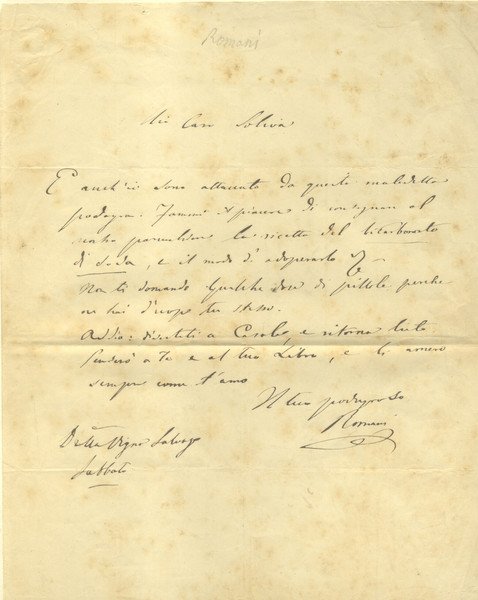 Romani
Mio Caro Soliva
E anch'io sono attaccato da questa maledetta
podagra. Fammi il piacere di consegnare al
nostro la ricetta del bicarbonato
di Soda, e il modo d'adoperarlo
Non ti domando qualche dose di pillole, perchè
ne hai d'uopo tu stesso.
Addio: divertiti a Casale, e ritorna tosto
Penserò a Te e al tuo Libro, e ti amerò
sempre come t'amo
Il tuo podagroso
Romani
Dalla Vigna
Sabbato